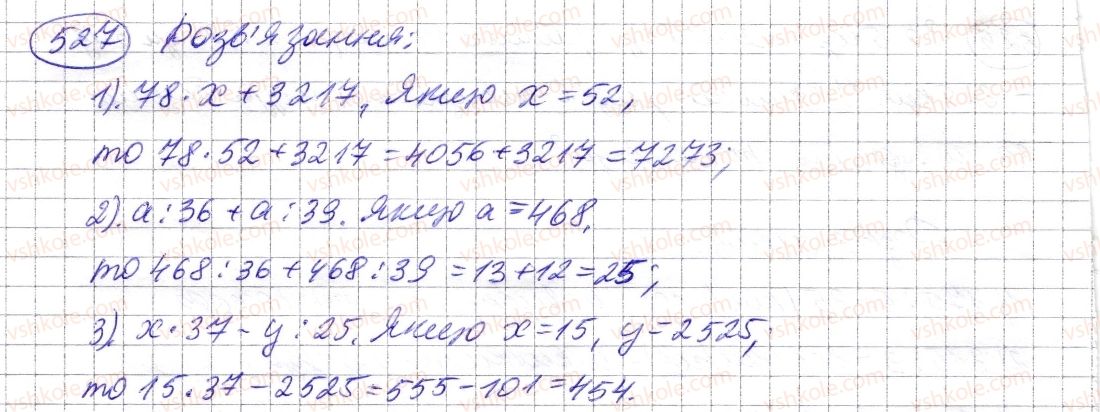 527 Розв'язання:
1). 78 · x + 3217, якщо x = 52,
то 78 · 52 + 3217 = 4056 + 3217 = 7273;
2). a : 36 + a : 39. Якщо a = 468,
то 468 : 36 + 468 : 39 = 13 + 12 = 25;
3) x · 37 - y : 25. Якщо x = 15, y = 2525,
то 15 · 37 - 2525 = 555 - 101 = 454.